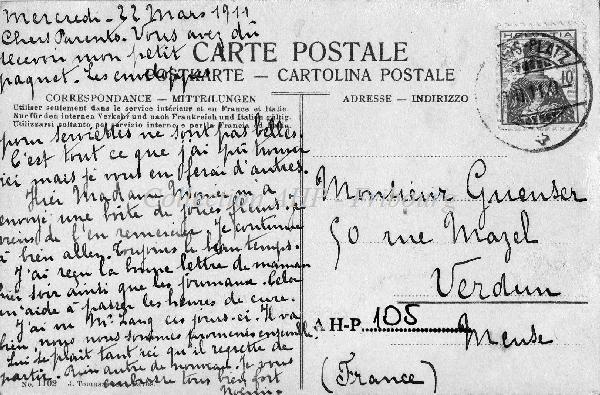 Mercredi - 22 Mars 1911
Chers Parents. Vous avez dû
recevoir mon petit
paquet. Les enveloppes
CARTE POSTALE
POSTKARTE — CARTOLINA POSTALE
CORRESPONDANCE — MITTEILUNGEN
ADRESSE — INDIRIZZO
Utiliser seulement dans le service intérieur et en France et Italie.
Nur für den internen Verkehr und nach Frankreich und Italien gültig.
Utilizzarsi soltanto pel servizio interno e per la Francia ed Italia
pour serviettes ne sont pas belles.
C'est tout ce que j'ai pu trouver
ici mais je vous en ferai d'autres.
Hier Madame m'a
envoyé une boîte de jolies fleurs. Je
viens de l'en remercier. Je continue
à bien aller. Toujours le beau temps.
J'ai reçu la bonne lettre de maman
hier soir ainsi que les journaux. Cela
m'aide à passer les heures de cure.
J'ai vu Mr Lang ces jours-ci. Il va
bien, nous nous sommes promenés ensemble.
Lui se plaît tant ici qu'il regrette de
partir. Rien autre de nouveau. Je vous
embrasse tous bien fort
HELVETIA
10
PLATZ
Monsieur Guenser
50 rue Mazel
Verdun
Meuse
(France)
A H-P 105
Collection AHP - Fribourg
No. 1102